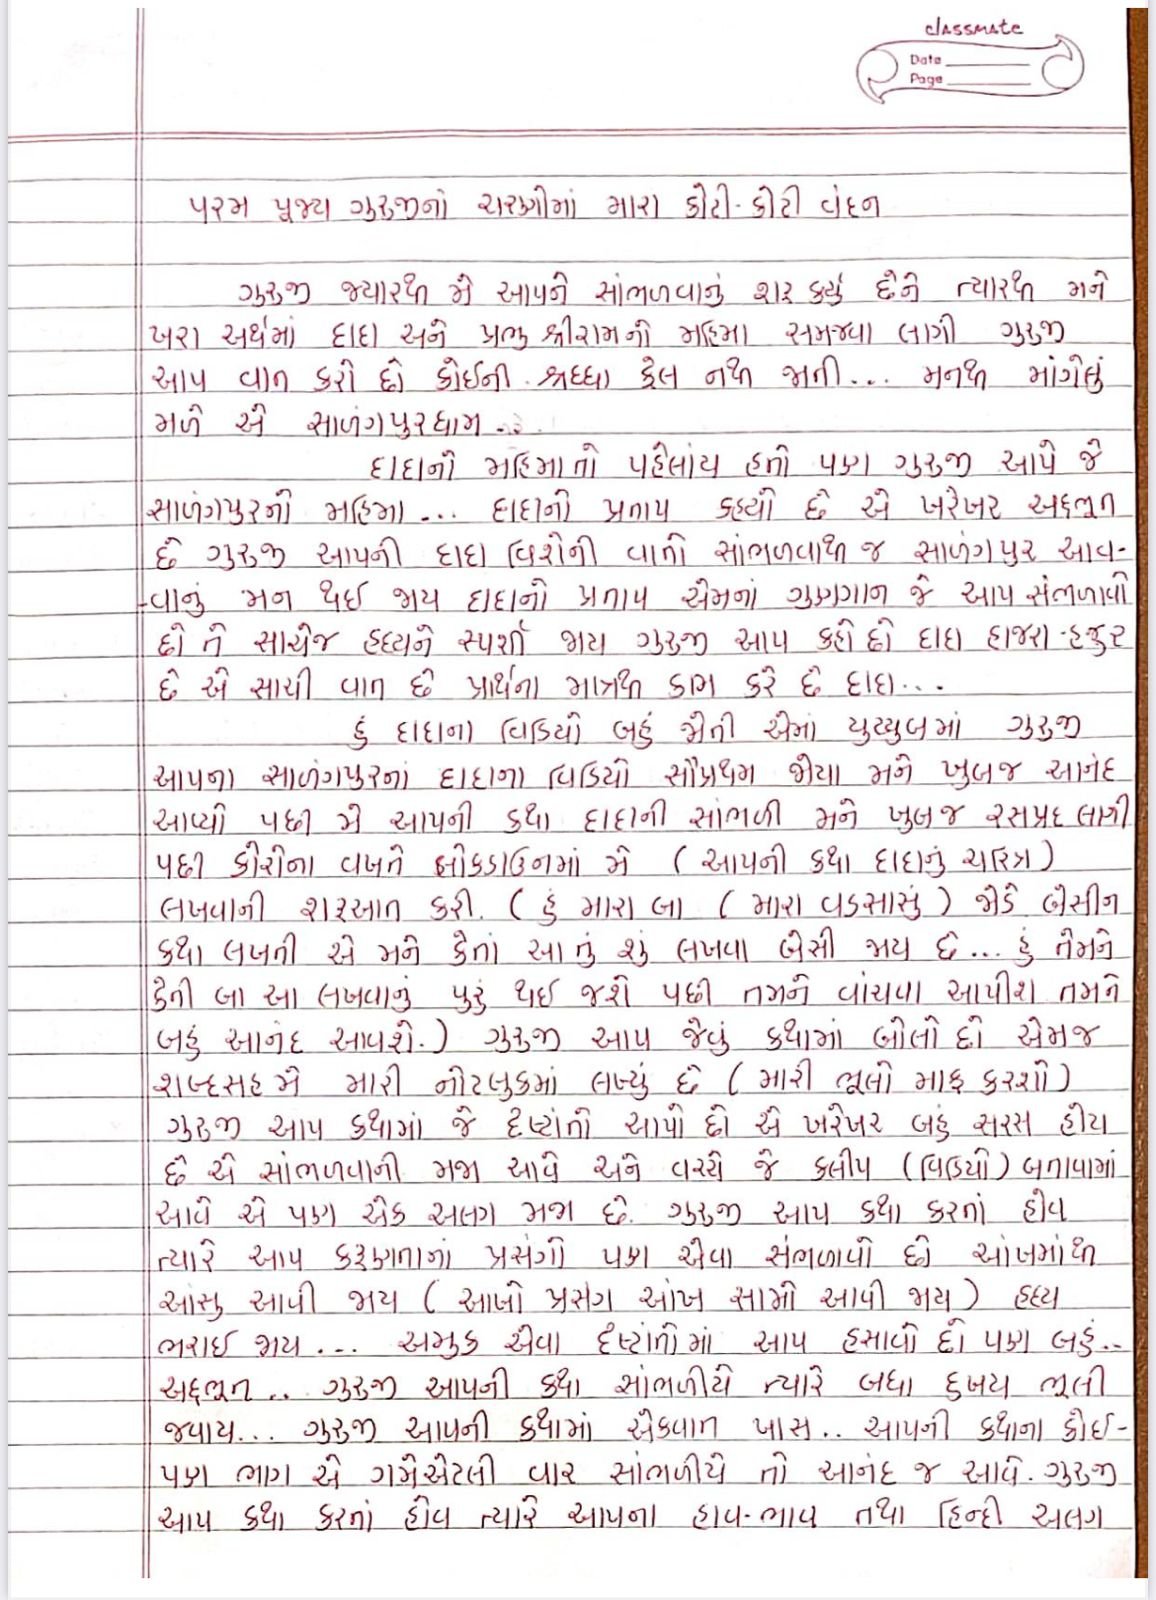 classmate
Date
Page
પરમ પૂજ્ય ગુરુજીનાં ચરણોમાં મારા કોટી-કોટી વંદન
ગુરુજી જ્યારથી મેં આપને સાંભળવાનું શરૂ કર્યું છેને ત્યારથી મને
ખરા અર્થમાં દાદા અને પ્રભુ શ્રીરામનો મહિમા સમજવા લાગી ગુરુજી
આપ વાત કરો છો કોઈની શ્રધ્ધા ફેલ નથી જાતી... મનથી માંગેલું
મળે એ સાળંગપુરધામ...
દાદાનો મહિમાતો પહેલાંય હતો પણ ગુરુજી આપે જે
સાળંગપુરનો મહિમા... દાદાનો પ્રતાપ કહ્યો છે એ ખરેખર અદ્દભૂત
છે ગુરુજી આપની દાદા વિશેની વાતો સાંભળવાથી જ સાળંગપુર આવ-
-વાનું મન થઈ જાય દાદાનો પ્રતાપ એમનાં ગુણગાન જે આપ સંભળાવો
છો તે સાચેજ હૃદયને સ્પર્શી જાય ગુરુજી આપ કહો છો દાદા હાજરા-હજુર
છે એ સાચી વાત છે પ્રાર્થના માત્રથી કામ કરે છે દાદા...
હું દાદાના વિડિયો બહું જોતી એમાં યુટ્યુબમાં ગુરુજી
આપના સાળંગપુરનાં દાદાના વિડિયો સૌપ્રથમ જોયા મને ખુબજ આનંદ
આવ્યો પછી મેં આપની કથા દાદાની સાંભળી મને ખુબજ રસપ્રદ લાગી
પછી કોરોના વખતે લોકડાઉનમાં મેં (આપની કથા દાદાનું ચરિત્ર)
લખવાની શરૂઆત કરી. (હું મારા બા (મારા વડસાસું) જોડે બેસીને
કથા લખતી એ મને કેતાં આ તું શું લખવા બેસી જાય છે... હું તેમને
કેતી બા આ લખવાનું પુરું થઈ જશે પછી તમને વાંચવા આપીશ તમને
બહું આનંદ આવશે.) ગુરુજી આપ જેવું કથામાં બોલો છો એમજ
શબ્દસહ મેં મારી નોટબુકમાં લખ્યું છે (મારી ભૂલો માફ કરશો)
ગુરુજી આપ કથામાં જે દૃષ્ટાંતો આપો છો એ ખરેખર બહું સરસ હોય
છે એ સાંભળવાની મજા આવે અને વચ્ચે જે કલીપ (વિડિયો) બતાવામાં
આવે એ પણ એક અલગ મજા છે. ગુરુજી આપ કથા કરતાં હોવ
ત્યારે આપ કરૂણતાનાં પ્રસંગો પણ એવા સંભળાવો છો આંખમાંથી
આંસુ આવી જાય (આખો પ્રસંગ આંખ સામો આવી જાય) હૃદય
ભરાઈ જાય... અમુક એવા દૃષ્ટાંતોમાં આપ હસાવો છો પણ બહું..
અદ્દભૂત.. ગુરુજી આપની કથા સાંભળીયે ત્યારે બધા દુખય ભૂલી
જવાય... ગુરુજી આપની કથામાં એકવાત ખાસ.. આપની કથાના કોઈ-
પણ ભાગ એ ગમેએટલી વાર સાંભળીયે તો આનંદ જ આવે. ગુરુજી
આપ કથા કરતાં હોવ ત્યારે આપના હાવ-ભાવ તથા હિન્દી અલગ